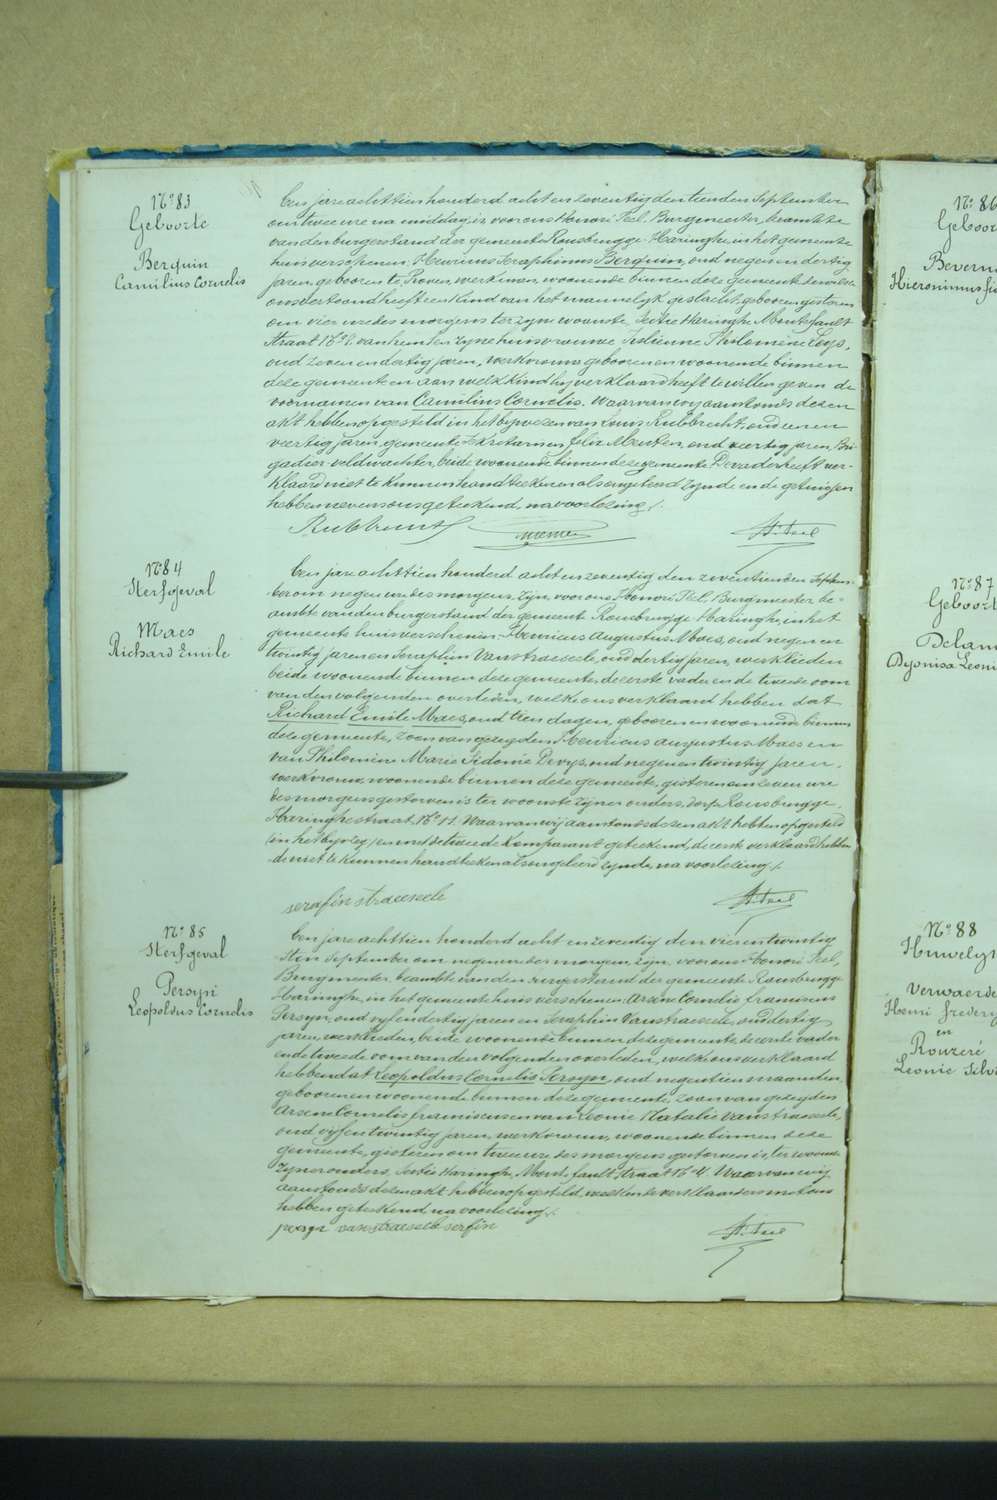 No 83
Geboorte
Berquin
Camilius Cornelis
Een jare achttien honderd acht en zeventig den tienden September
om twee ure na middag, is voor ons Honoré Teel, Burgmeester, beambte
van den burgerstand der gemeente Rousbrugge-Haringhe, in het gemeente
huis verschenen: Henricus Seraphinus Berquin, oud negen en dertig
jaren, geboren te Proven, werkman, woonende binnen deze gemeente, dewelke
ons vertoond heeft een kind van het mannelyk geslacht, geboren gisteren
om vier ure des morgens ter zyne woonste, Sectie Haringhe, Monts
straat No van hem en zyne huisvrouwe Julienne Philomène Leys,
oud zeven en dertig jaren, werkvrouw, geboren en woonende binnen
deze gemeente en aan welk kind hy verklaard heeft te willen geven de
voornamen van Camilius Cornelis. Waarvan wy aanstonds dezen
akt hebben opgesteld in het bywezen van Louis Rubbrecht, oud een en
veertig jaren, gemeente Sekretaris en Felix Meesten, oud veertig jaren, Bri-
gadier-veldwachter, beide woonende binnen deze gemeente. De vader heeft ver-
klaard niet te kunnen handteekenen als ongeleerd zynde en de getuigen
hebben nevens ons geteekend, na voorlezing /.
Rubbrecht
H. Teel
No 84
Sterfgeval
Maes
Richard Emile
Een jare achttien honderd acht en zeventig den zeventienden Septem-
ber om negen ure des morgens, zyn voor ons Honoré Teel, Burgmeester be-
ambte van den burgerstand der gemeente Rousbrugge-Haringhe, in het
gemeente huis verschenen: Henricus Augustus Maes, oud negen en
twintig jaren en Seraphin Vanstraeseele, oud dertig jaren, werklieden
beide woonende binnen deze gemeente, de eerste vader en de tweede oom
van den volgenden overleden, welke ons verklaard hebben dat
Richard Emile Maes, oud tien dagen, geboren en woonende binnen
deze gemeente, zoon van gezegden Henricus Augustus Maes en
van Philomène Marie Sidonie Devys, oud negen en twintig jaren,
werkvrouw, woonende binnen deze gemeente, gisteren om zeven ure
des morgens gestorven is ter woonste zyner ouders, dorp Rousbrugge,
Haringhestraat, No 11. Waarvan wy aanstonds dezen akt hebben opgesteld
en met de tweede komparant geteekend, de eerste verklaard hebben-
de niet te kunnen handteekenen als ongeleerd zynde, na voorlezing /.
serafin straeseele
H. Teel
No 85
Sterfgeval
Persyn
Leopoldus Cornelis
Een jare achttien honderd acht en zeventig den vier en twintig-
sten September om negen ure des morgens, zyn voor ons Honoré Teel,
Burgmeester beambte van den burgerstand der gemeente Rousbrugge-
Haringhe, in het gemeente huis verschenen: Arsène Cornelis Franciscus
Persyn, oud vyf en dertig jaren en Seraphin Vanstraeseele, oud dertig
jaren, werklieden, beide woonende binnen deze gemeente, de eerste vader
en de tweede oom van den volgenden overleden, welke ons verklaard
hebben dat Leopoldus Cornelis Persyn, oud negentien maanden,
geboren en woonende binnen deze gemeente, zoon van gezegden
Arsène Cornelis Franciscus en van Leonie Natalie Vanstraeseele,
oud vyf en twintig jaren, werkvrouw, woonende binnen deze
gemeente, gisteren om twee ure des morgens gestorven is, ter woonste
zyner ouders, Sectie Haringhe, straat No 4. Waarvan wy
aanstonds dezen akt hebben opgesteld, welken de verklaarders met ons
hebben geteekend na voorlezing /.
persyn vanstraeseele serfin
H. Teel
No 86
Geboor
Bevern
Hieronimus
No 87
Geboort
Delan
Dyonisa Leoni
No 88
Huwelyk
Verwaerde
Henri Frederi
en
Rouzeré
Leonie Silvi